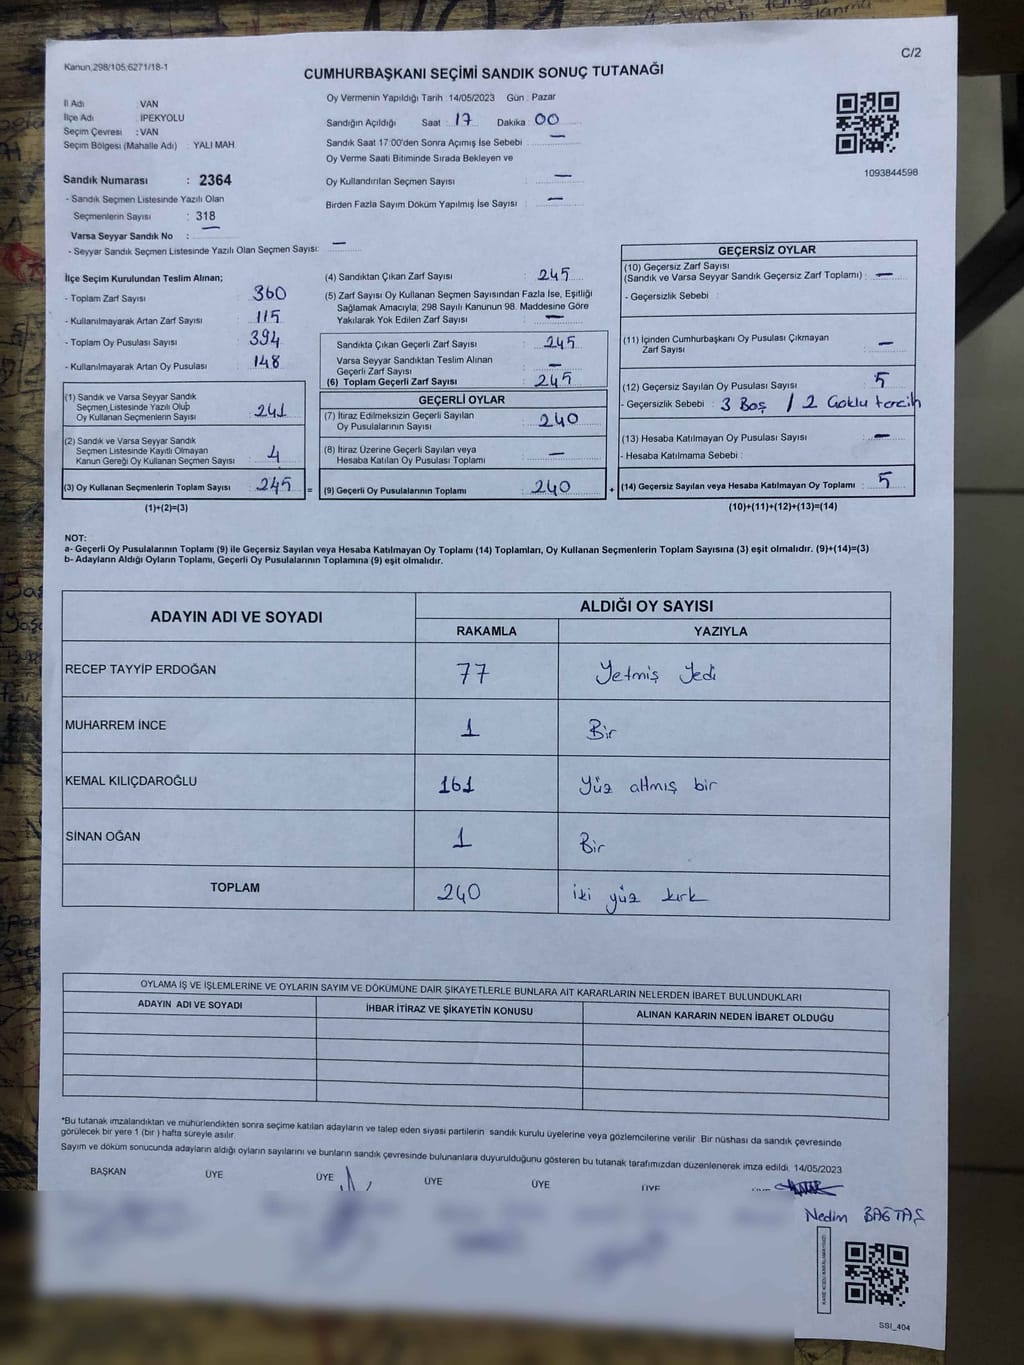 C/2
Kanun,298/105,6271/18-1
CUMHURBAŞKANI SEÇİMİ SANDIK SONUÇ TUTANAĞI
İl Adı : VAN
İlçe Adı : İPEKYOLU
Seçim Çevresi : VAN
Seçim Bölgesi (Mahalle Adı) : YALI MAH.
Sandık Numarası : 2364
- Sandık Seçmen Listesinde Yazılı Olan
Seçmenlerin Sayısı : 318
Varsa Seyyar Sandık No : —
- Seyyar Sandık Seçmen Listesinde Yazılı Olan Seçmen Sayısı: —
Oy Vermenin Yapıldığı Tarih : 14/05/2023 Gün : Pazar
Sandığın Açıldığı Saat : 17 Dakika : 00
Sandık Saat 17:00'den Sonra Açımış İse Sebebi : —
Oy Verme Saati Bitiminde Sırada Bekleyen ve
Oy Kullandırılan Seçmen Sayısı : —
Birden Fazla Sayım Döküm Yapılmış İse Sayısı : —
1093844598
İlçe Seçim Kurulundan Teslim Alınan;
- Toplam Zarf Sayısı : 360
- Kullanılmayarak Artan Zarf Sayısı : 115
- Toplam Oy Pusulası Sayısı : 394
- Kullanılmayarak Artan Oy Pusulası : 148
(1) Sandık ve Varsa Seyyar Sandık
Seçmen Listesinde Yazılı Olup
Oy Kullanan Seçmenlerin Sayısı : 241
(2) Sandık ve Varsa Seyyar Sandık
Seçmen Listesinde Kayıtlı Olmayan
Kanun Gereği Oy Kullanan Seçmen Sayısı : 4
(3) Oy Kullanan Seçmenlerin Toplam Sayısı : 245 =
(1)+(2)=(3)
(4) Sandıktan Çıkan Zarf Sayısı : 245
(5) Zarf Sayısı Oy Kullanan Seçmen Sayısından Fazla İse, Eşitliği
Sağlamak Amacıyla, 298 Sayılı Kanunun 98. Maddesine Göre
Yakılarak Yok Edilen Zarf Sayısı : —
Sandıkta Çıkan Geçerli Zarf Sayısı : 245
Varsa Seyyar Sandıktan Teslim Alınan
Geçerli Zarf Sayısı : —
(6) Toplam Geçerli Zarf Sayısı : 245
GEÇERLİ OYLAR
(7) İtiraz Edilmeksizin Geçerli Sayılan
Oy Pusulalarının Sayısı : 240
(8) İtiraz Üzerine Geçerli Sayılan veya
Hesaba Katılan Oy Pusulası Toplamı : —
(9) Geçerli Oy Pusulalarının Toplamı : 240 +
GEÇERSİZ OYLAR
(10) Geçersiz Zarf Sayısı
(Sandık ve Varsa Seyyar Sandık Geçersiz Zarf Toplamı) : —
- Geçersizlik Sebebi :
(11) İçinden Cumhurbaşkanı Oy Pusulası Çıkmayan
Zarf Sayısı : —
(12) Geçersiz Sayılan Oy Pusulası Sayısı : 5
- Geçersizlik Sebebi : 3 Boş / 2 Çoklu tercih
(13) Hesaba Katılmayan Oy Pusulası Sayısı : —
- Hesaba Katılmama Sebebi :
(14) Geçersiz Sayılan veya Hesaba Katılmayan Oy Toplamı : 5
(10)+(11)+(12)+(13)=(14)
NOT:
a- Geçerli Oy Pusulalarının Toplamı (9) ile Geçersiz Sayılan veya Hesaba Katılmayan Oy Toplamı (14) Toplamları, Oy Kullanan Seçmenlerin Toplam Sayısına (3) eşit olmalıdır. (9)+(14)=(3)
b- Adayların Aldığı Oyların Toplamı, Geçerli Oy Pusulalarının Toplamına (9) eşit olmalıdır.
ADAYIN ADI VE SOYADI
ALDIĞI OY SAYISI
RAKAMLA YAZIYLA
RECEP TAYYİP ERDOĞAN 77 Yetmiş Yedi
MUHARREM İNCE 1 Bir
KEMAL KILIÇDAROĞLU 161 Yüz altmış bir
SİNAN OĞAN 1 Bir
TOPLAM 240 iki yüz kırk
OYLAMA İŞ VE İŞLEMLERİNE VE OYLARIN SAYIM VE DÖKÜMÜNE DAİR ŞİKAYETLERLE BUNLARA AİT KARARLARIN NELERDEN İBARET BULUNDUKLARI
ADAYIN ADI VE SOYADI İHBAR İTİRAZ VE ŞİKAYETİN KONUSU ALINAN KARARIN NEDEN İBARET OLDUĞU
*Bu tutanak imzalandıktan ve mühürlendikten sonra seçime katılan adayların ve talep eden siyasi partilerin sandık kurulu üyelerine veya gözlemcilerine verilir. Bir nüshası da sandık çevresinde
görülecek bir yere 1 (bir ) hafta süreyle asılır.
Sayım ve döküm sonucunda adayların aldığı oyların sayılarını ve bunların sandık çevresinde bulunanlara duyurulduğunu gösteren bu tutanak tarafımızdan düzenlenerek imza edildi. 14/05/2023
BAŞKAN ÜYE ÜYE ÜYE ÜYE ÜYE
Nedim BAĞTAŞ
SSI_404